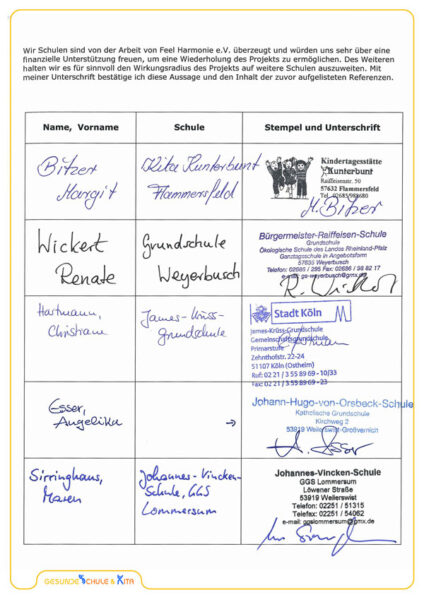 Wir Schulen sind von der Arbeit von Feel Harmonie e.V. überzeugt und würden uns sehr über eine
finanzielle Unterstützung freuen, um eine Wiederholung des Projekts zu ermöglichen. Des Weiteren
halten wir es für sinnvoll den Wirkungsradius des Projekts auf weitere Schulen auszuweiten. Mit
meiner Unterschrift bestätige ich diese Aussage und den Inhalt der zuvor aufgelisteten Referenzen.
Name, Vorname Schule Stempel und Unterschrift
Bitzer
Margit
Kita Kunterbunt
Flammersfeld
Kindertagesstätte
Kunterbunt
Raiffeisenstr. 50
57632 Flammersfeld
Tel. 02685/986680
M. Bitzer
Wickert
Renate
Grundschule
Weyerbusch
Bürgermeister-Raiffeisen-Schule
Grundschule
Ökologische Schule des Landes Rheinland-Pfalz
Ganztagsschule in Angebotsform
57635 Weyerbusch
Telefon: 02686 / 295 Fax: 02686 / 98 82 17
e-mail: gs-weyerbusch@gmx.de
R. Wickert
Hartmann,
Christiane
James-Krüss-
Grundschule
Stadt Köln
James-Krüss-Grundschule
Gemeinschaftsgrundschule
Primarstufe
Zehnthofstr. 22-24
51107 Köln (Ostheim)
Ruf: 02 21 / 3 55 89 69 - 10/33
Fax: 02 21 / 3 55 89 69 - 23
Esser,
Angelika
→
Johann-Hugo-von-Orsbeck-Schule
Katholische Grundschule
Kirchweg 2
53919 Weilerswist-Großvernich
A. Esser
Sirringhaus,
Maren
Johannes-Vincken-
Schule, GGS
Lommersum
Johannes-Vincken-Schule
GGS Lommersum
Löwener Straße
53919 Weilerswist
Telefon: 02251 / 51315
Telefax: 02251 / 54062
e-mail: ggslommersum@gmx.de
GESUNDE SCHULE & KITA